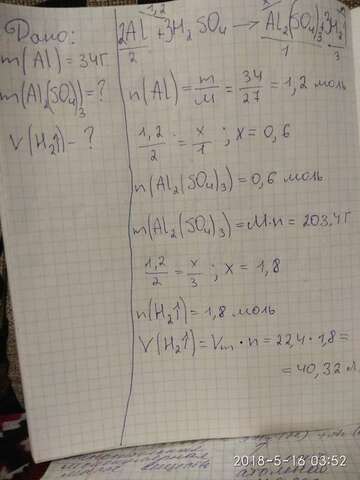 Дано:
m(Al) = 34г
m(Al₂(SO₄)₃ = ?
V(H₂↑) - ?
1,2 x
2Al + 3H₂SO₄ → Al₂(SO₄)₃ + 3H₂↑
2 1 3
n(Al) = m/M = 34/27 = 1,2 моль
1,2/2 = x/1 ; x = 0,6
n(Al₂(SO₄)₃) = 0,6 моль
m(Al₂(SO₄)₃) = M·n = 203,4г
1,2/2 = x/3 ; x = 1,8
n(H₂↑) = 1,8 моль
V(H₂↑) = Vm · n = 22,4 · 1,8 =
= 40,32 л
2018-5-16 03:52